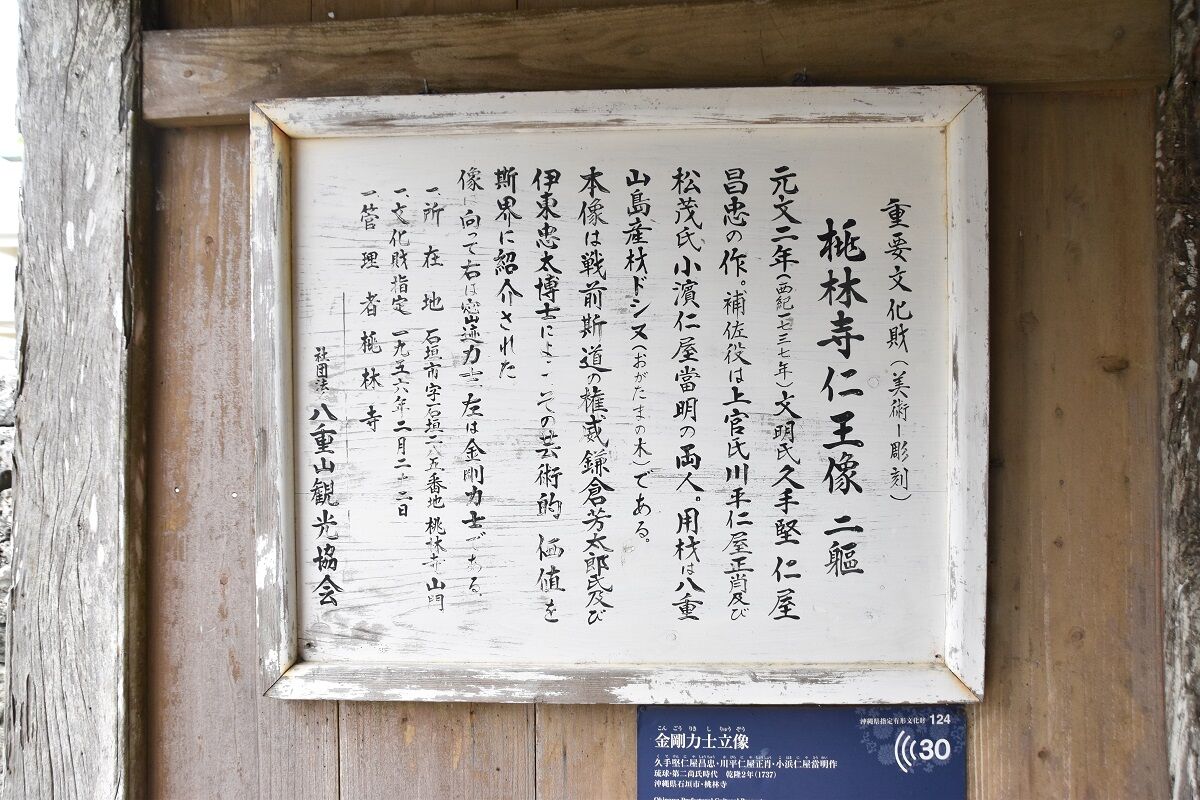 重要文化財(美術ー彫刻)
桃林寺仁王像 二軀
元文二年(西紀一七三七年)文明氏久手堅仁屋
昌忠の作。補佐役は上官氏川平仁屋正肖及び
松茂氏小濱仁屋當明の両人。用材は八重
山島産材ドシヌ(おがたまの木)である。
本像は戦前斯道の権威鎌倉芳太郎氏及び
伊東忠太博士によ その芸術的 価値を
斯界に紹介された
像に向って右は密迹力士 左は金剛力士である。
一、所在地 石垣市字石垣二八五番地桃林寺山門
一、文化財指定 一九五六年二月二十二日
一、管理者桃林寺
社団法 八重山観光協会
沖縄県指定有形文化財 124
30
こんごうりきしりゅうぞう
金剛力士立像
久手堅仁屋昌忠・川平仁屋正肖・小浜仁屋當明作
琉球・第二尚氏時代 乾隆2年(1737)
沖縄県石垣市・桃林寺